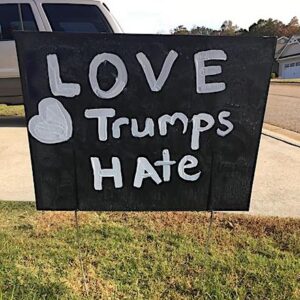 LOVE
Trumps
HAte